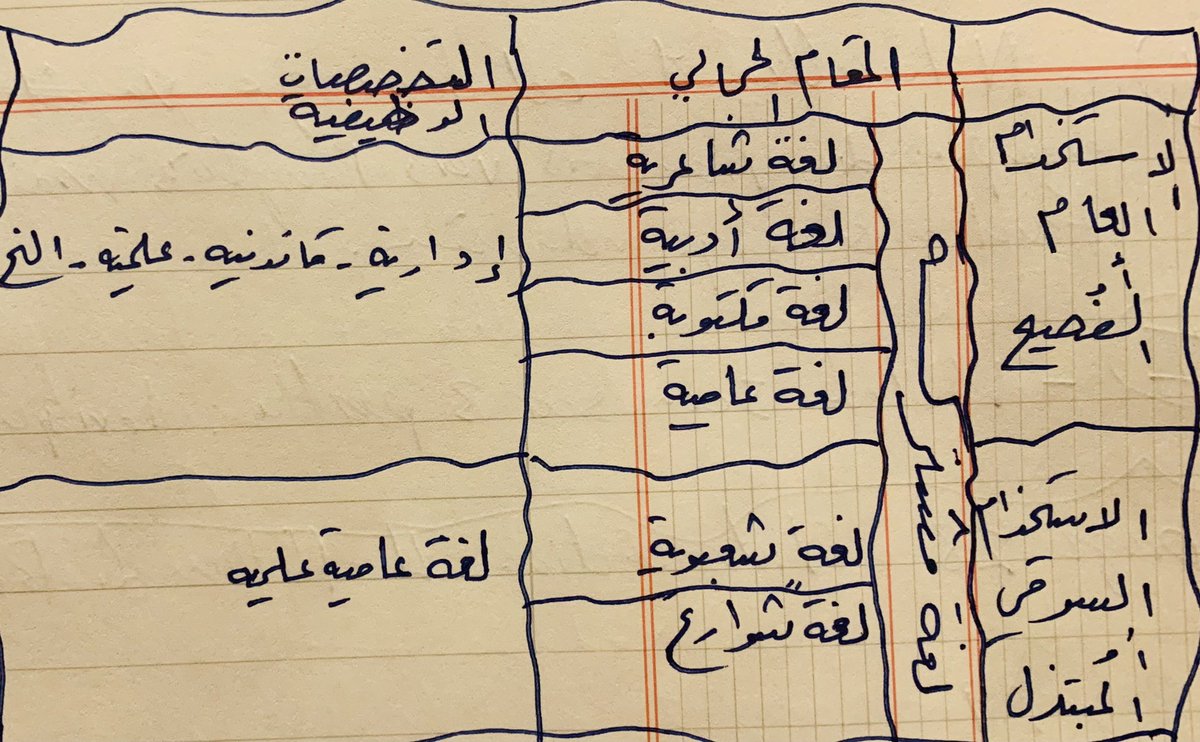 المقام الجمالي
التخصصات
الوظيفية
الاستخدام
العام
أو
الفصيح
لغة مشتركة
لغة شاعرية
لغة أدبية
لغة مكتوبة
لغة عامية
إدارية - قانونية - علمية - الخ
الاستخدام
السوقي
أو
المبتذل
لغة شعبوية
لغة شوارع
لغة عامية علمية